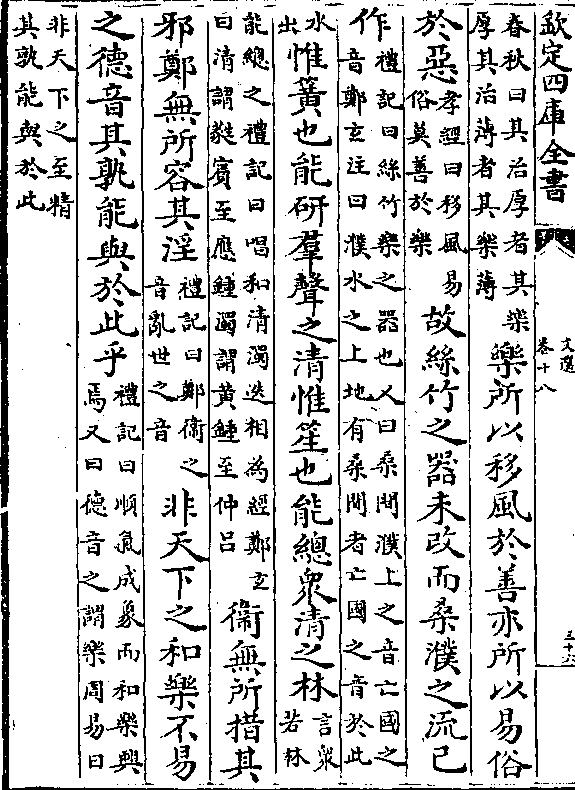 欽定四庫全書
文選
卷十八
三十六
春秋曰其治厚者其樂
厚其治薄者其樂薄
樂所以移風於善亦所以易俗
於惡
孝經曰移風易
俗莫善於樂
故絲竹之器未改而桑濮之流已
作
禮記曰絲竹樂之器也又曰桑間濮上之音亡國之
音鄭玄注曰濮水之上地有桑間者亡國之音於此
水
出
惟簧也能研羣聲之清惟笙也能總衆清之林
言衆
若林
能總之禮記曰唱和清濁迭相為經鄭玄
曰清謂蕤賓至應鍾濁謂黃鍾至仲呂
衞無所措其
邪鄭無所容其淫
禮記曰鄭衞之
音亂世之音
非天下之和樂不易
之德音其孰能與於此乎
禮記曰順氣成象而和樂興
焉又曰德音之謂樂周易曰
非天下之至精
其孰能與於此